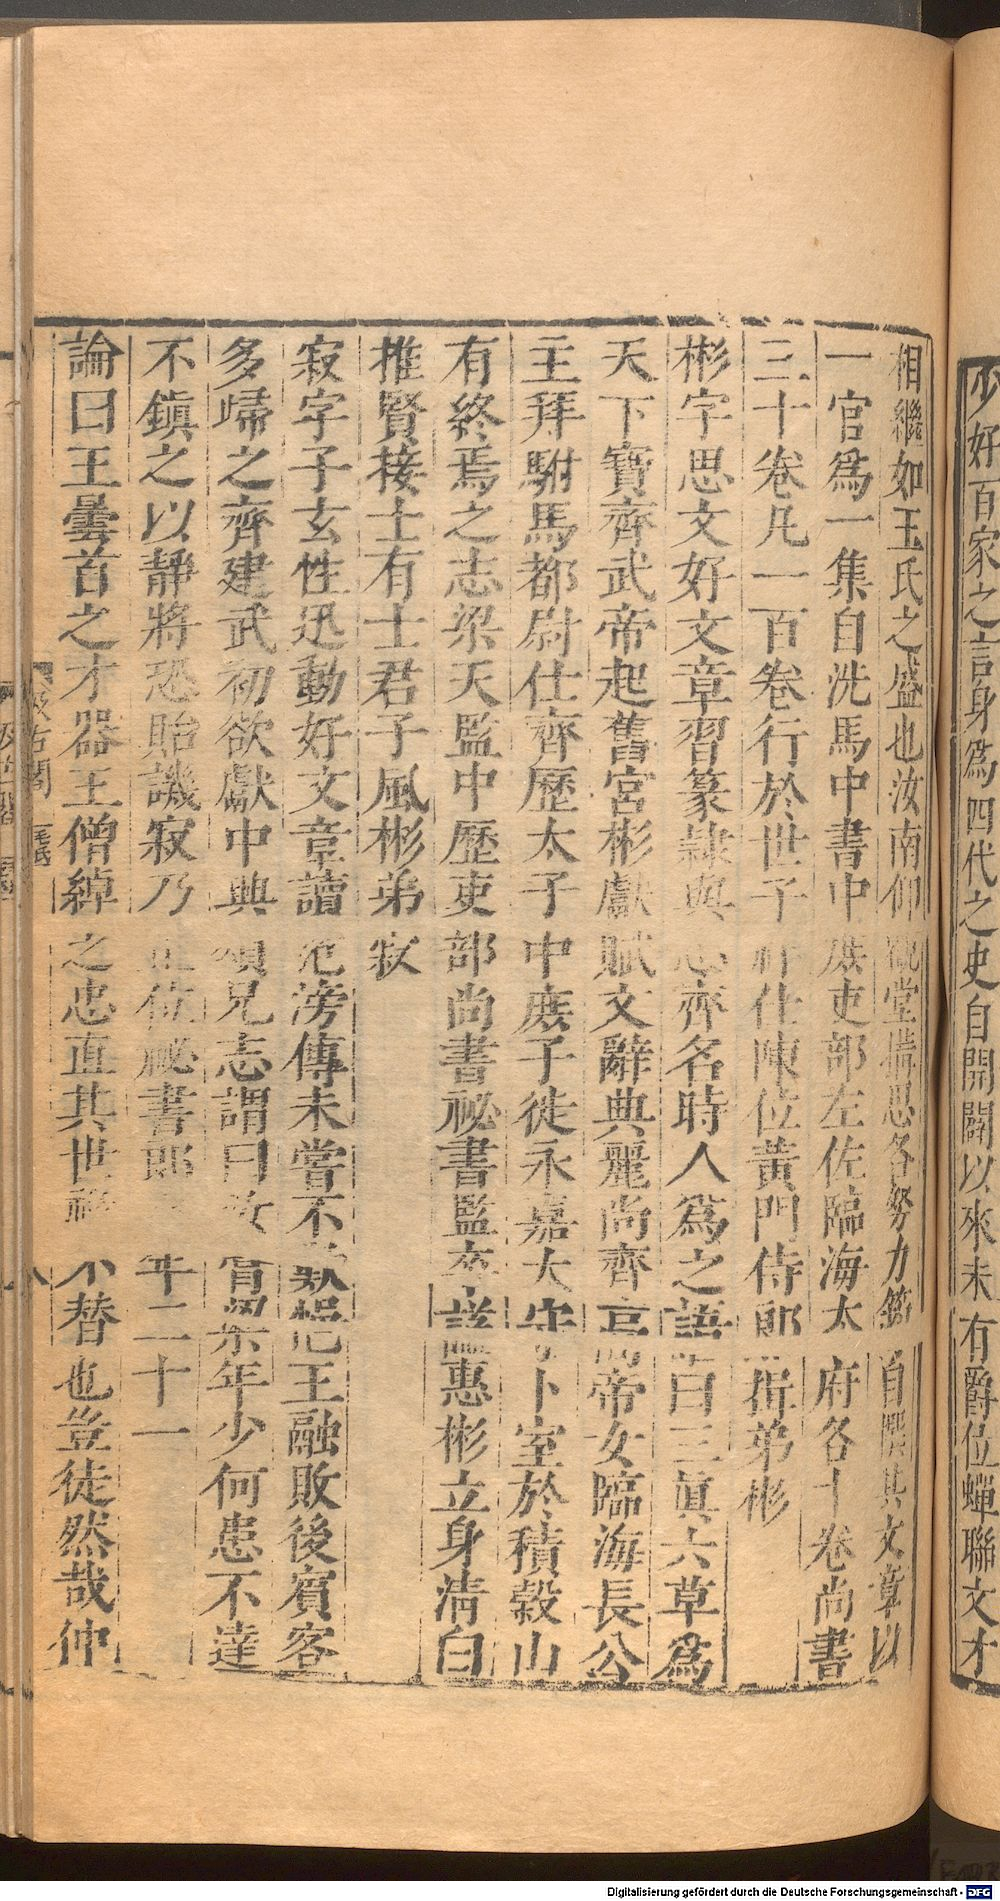 少好百家之言身爲四代之史自開闢以來未有爵位蟬聯文才
相繼如王氏之盛也汝南仰觀堂搆思各努力筠自撰其文章以
一官爲一集自洗馬中書中庶吏部左佐臨海太府各十卷尚書
三十卷凡一百卷行於世子祥仕陳位黃門侍郎揖弟彬
彬字思文好文章習篆隸與志齊名時人爲之語曰三眞六草爲
天下寶齊武帝起舊宮彬獻賦文辭典麗尚齊高帝女臨海長公
主拜駙馬都尉仕齊歷太子中庶子徙永嘉太守卜室於積穀山
有終焉之志梁天監中歷吏部尚書祕書監卒諡惠彬立身清白
推賢接士有士君子風彬弟寂
寂字子玄性迅動好文章讀范滂傳未嘗不歎挹王融敗後賓客
多歸之齊建武初欲獻中興頌兄志謂曰汝膏粱年少何患不達
不鎮之以靜將恐貽譏寂乃止位祕書郎卒年二十一
論曰王曇首之才器王僧綽之忠直其世祿不替也豈徒然哉仲
汲古閣
毛氏
Digitalisierung gefördert durch die Deutsche Forschungsgemeinschaft - DFG